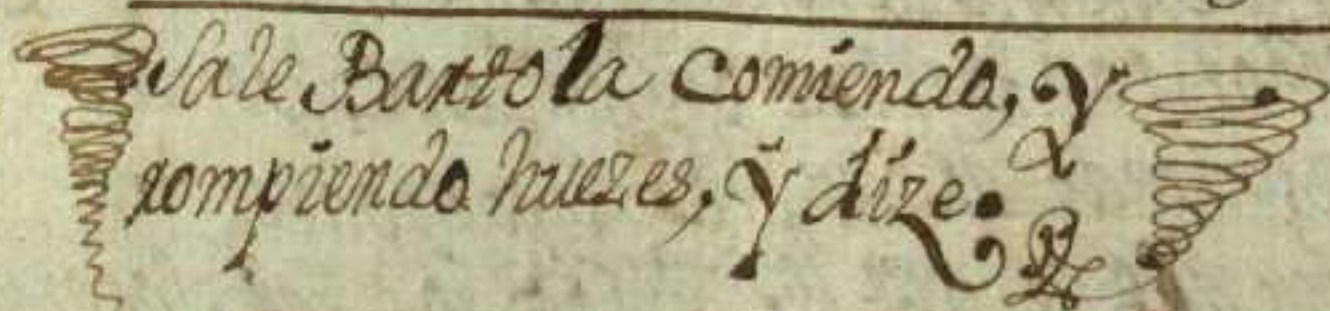 Sale Bartola Comiendo, y
rompiendo huezes, y dize.